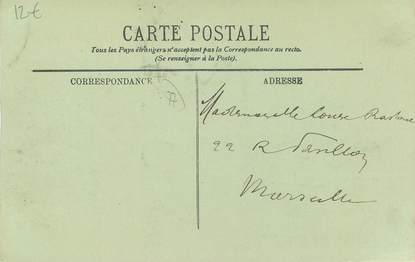 12€
CARTE POSTALE
Tous les Pays étrangers n'acceptent pas la Correspondance au recto.
(Se renseigner à la Poste).
CORRESPONDANCE
ADRESSE
Mademoiselle Louise
22 R
Marseille